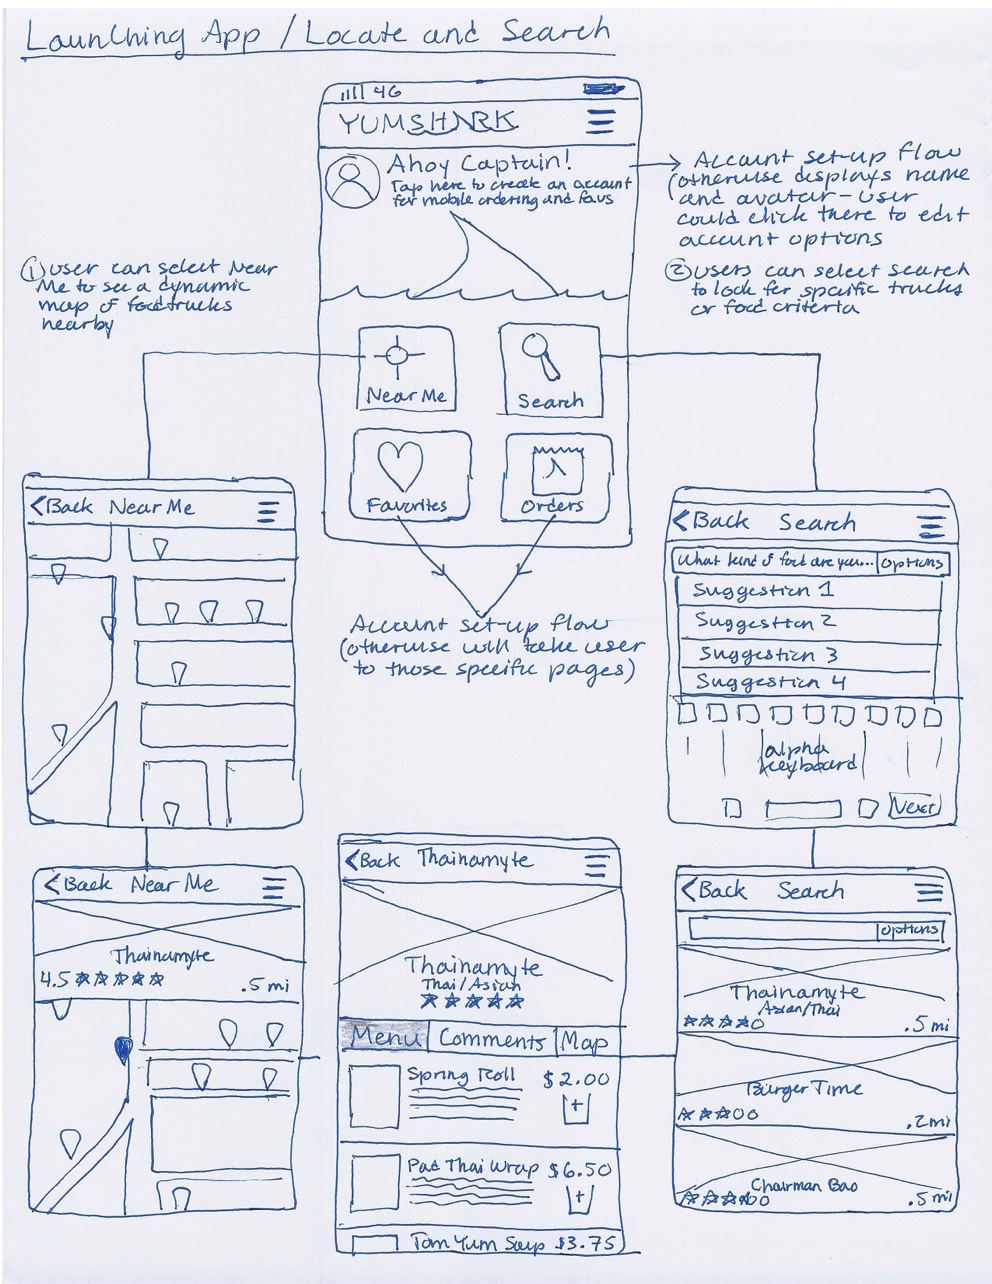 Launching App / Locate and Search
4G
YUMSHARK
Ahoy Captain!
Tap here to create an account
for mobile ordering and favs
Account set-up flow
(otherwise displays name
and avatar - user
could click there to edit
account options
① user can select Near
Me to see a dynamic
map of food trucks
nearby
② Users can select search
to look for specific trucks
or food criteria
Near Me
Search
Favorites
Orders
Account set-up flow
(otherwise will take user
to those specific pages)
<Back Near Me
<Back Search
What kind of food are you... Options
Suggestion 1
Suggestion 2
Suggestion 3
Suggestion 4
alpha
keyboard
Next
<Back Near Me
Thainamyte
4.5 .5 mi
<Back Thainamyte
Thainamyte
Thai/Asian
Menu Comments Map
Spring Roll $2.00
+
Pad Thai Wrap $6.50
+
Tom Yum Soup $3.75
<Back Search
Options
Thainamyte
Asian/Thai
.5 mi
Burger Time
.2 mi
Chairman Bao
.5 mi